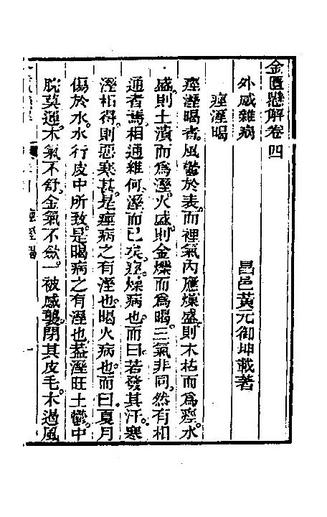 金匱懸解卷四
昌邑黃元御坤載著
外感雜病
痙溼暍
痙溼暍者風鬱於表而裡氣內應燥盛則木枯而為痙水
盛則土潰而為溼火盛則金燥而為暍三氣非同然有相
通者焉相通維何溼而已矣痙燥病也而曰若發其汗寒
溼相得則惡寒甚是痙病之有溼也暍火病也而曰夏月
傷於水水行皮中所致是暍病之有溼也蓋溼旺土鬱中
脘莫通木氣不舒金氣不斂一被感襲閉其皮毛木遏風